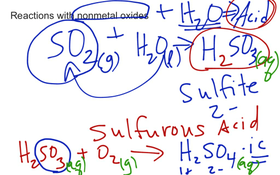 Reactions with nonmetal oxides + H₂O → Acid
SO₂(g) + H₂O(l) → H₂SO₃(aq)
Sulfite
2-
Sulfurous Acid
H₂SO₃(aq) + O₂(g) → H₂SO₄(aq) -ic
1+ 2-